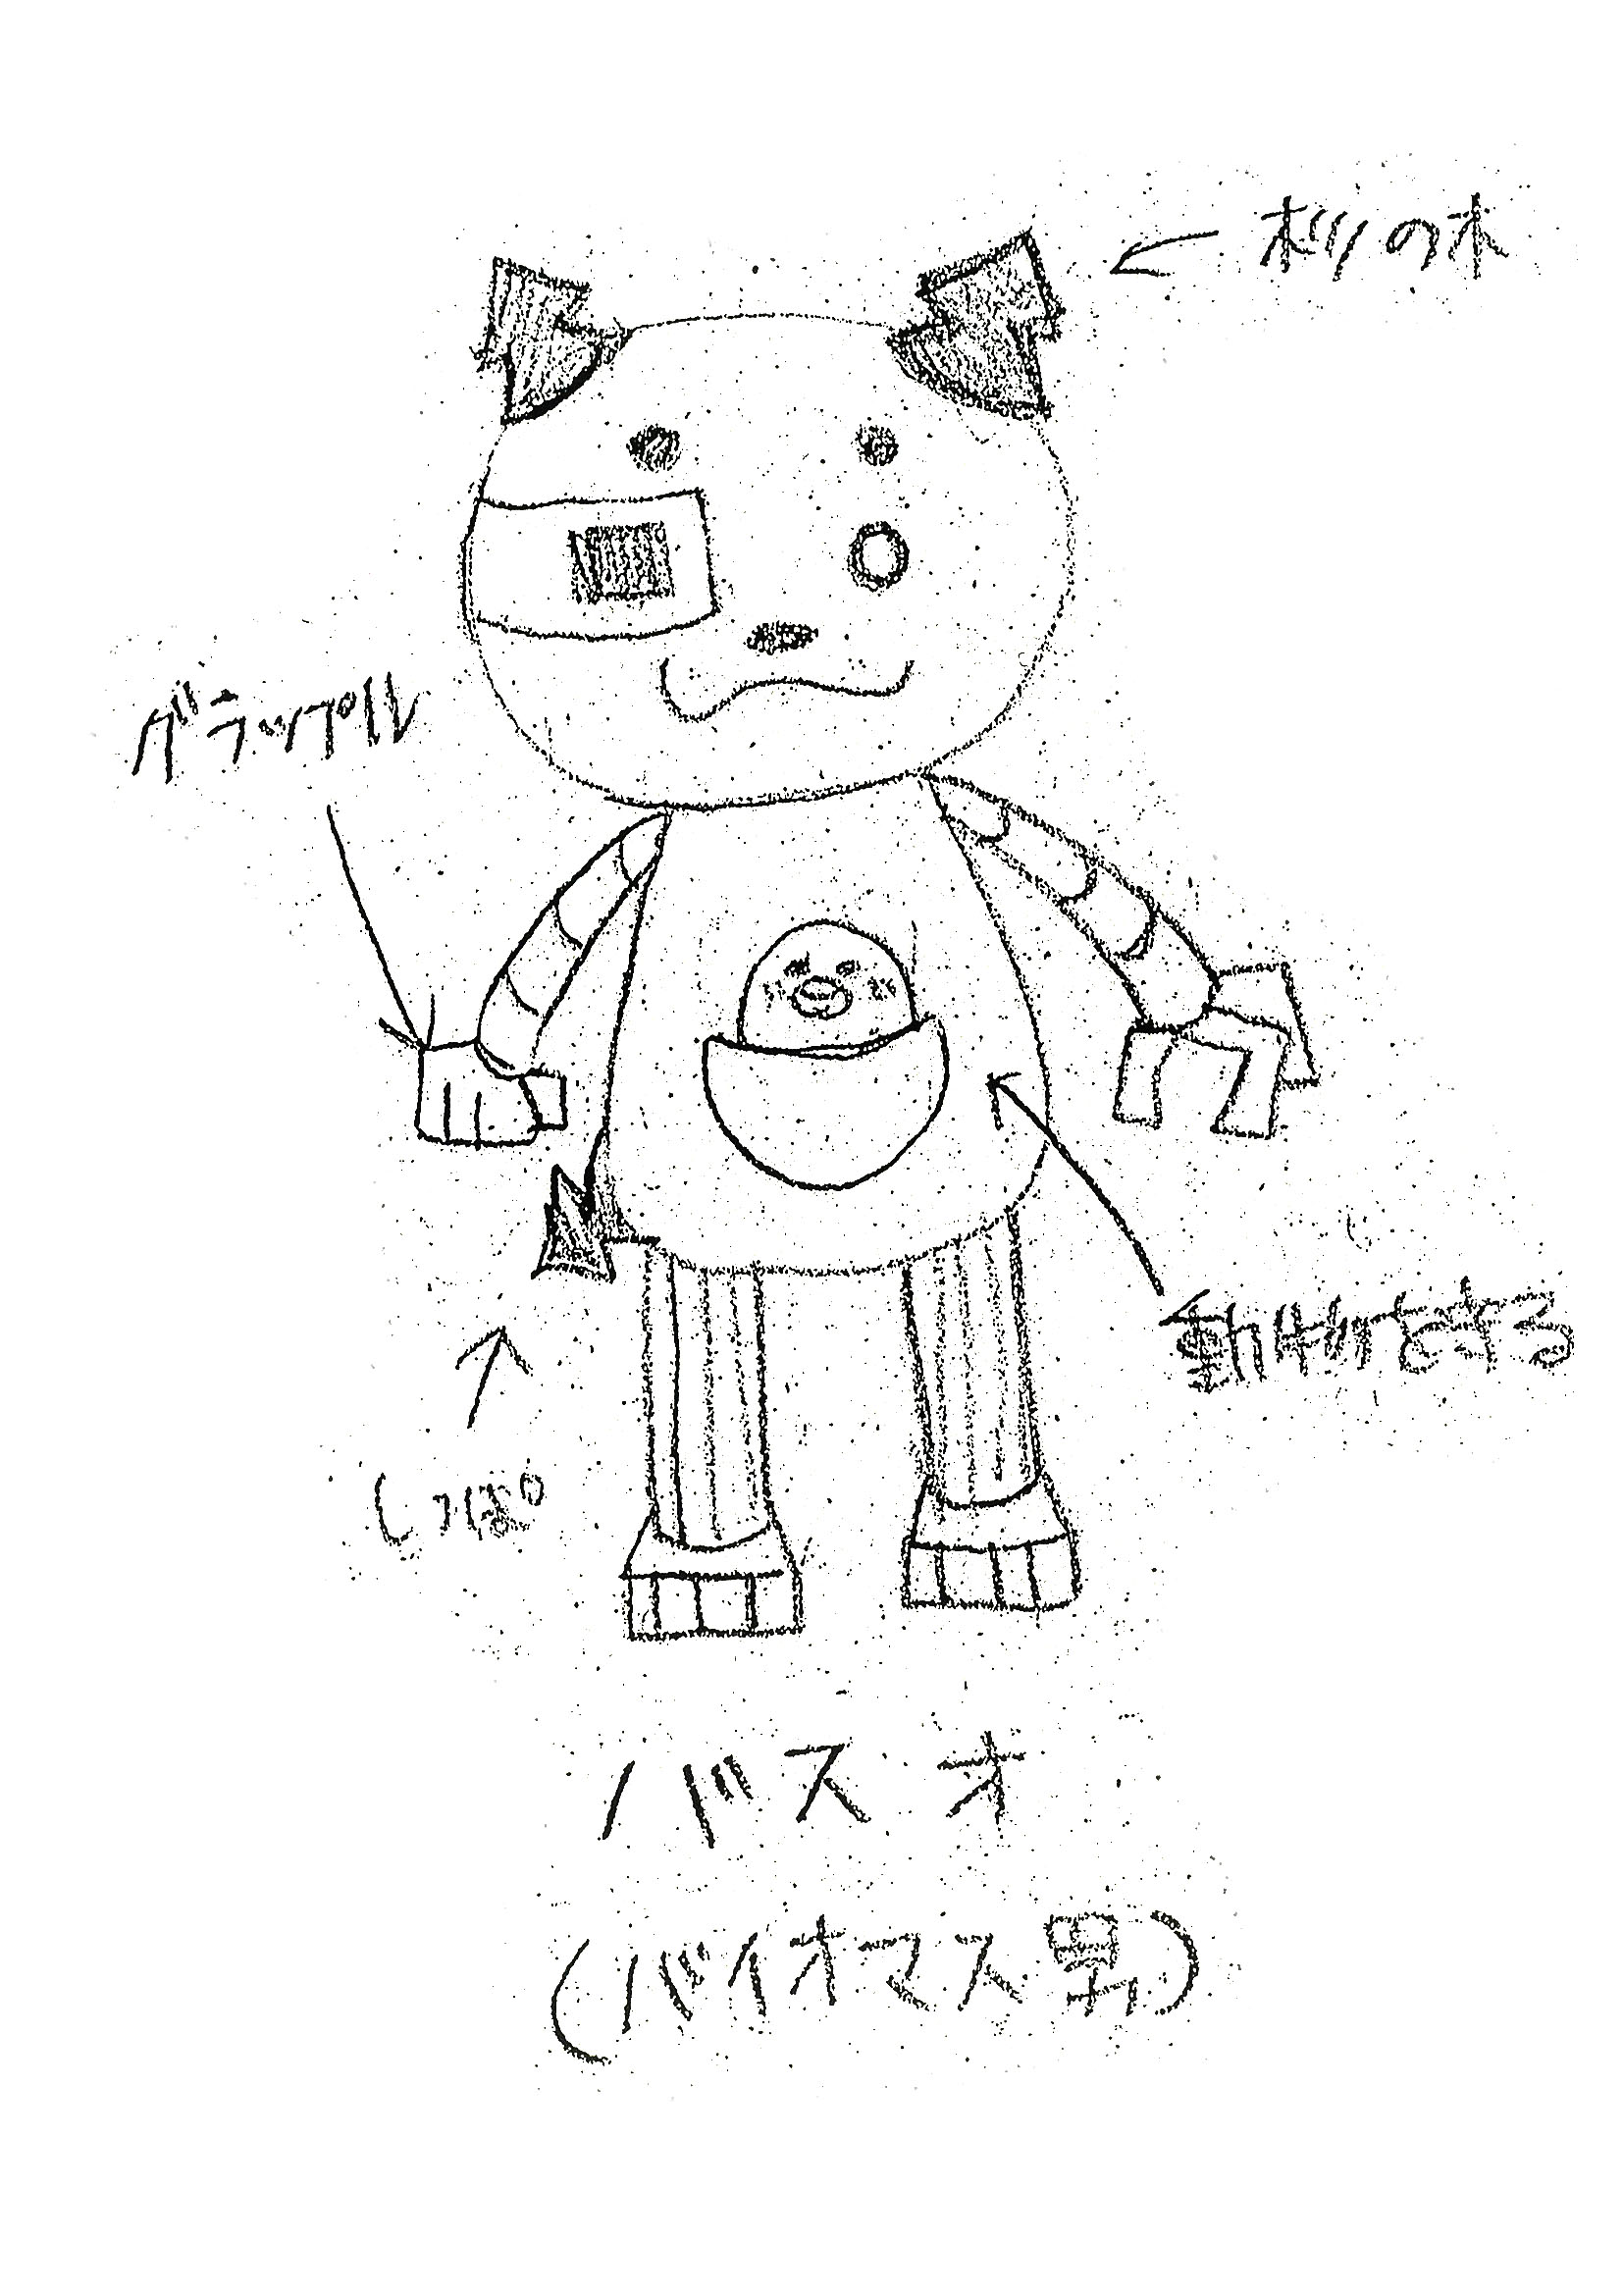 杉の木
グラップル
動物
しっぽ
バスオ
(バイオマス男)